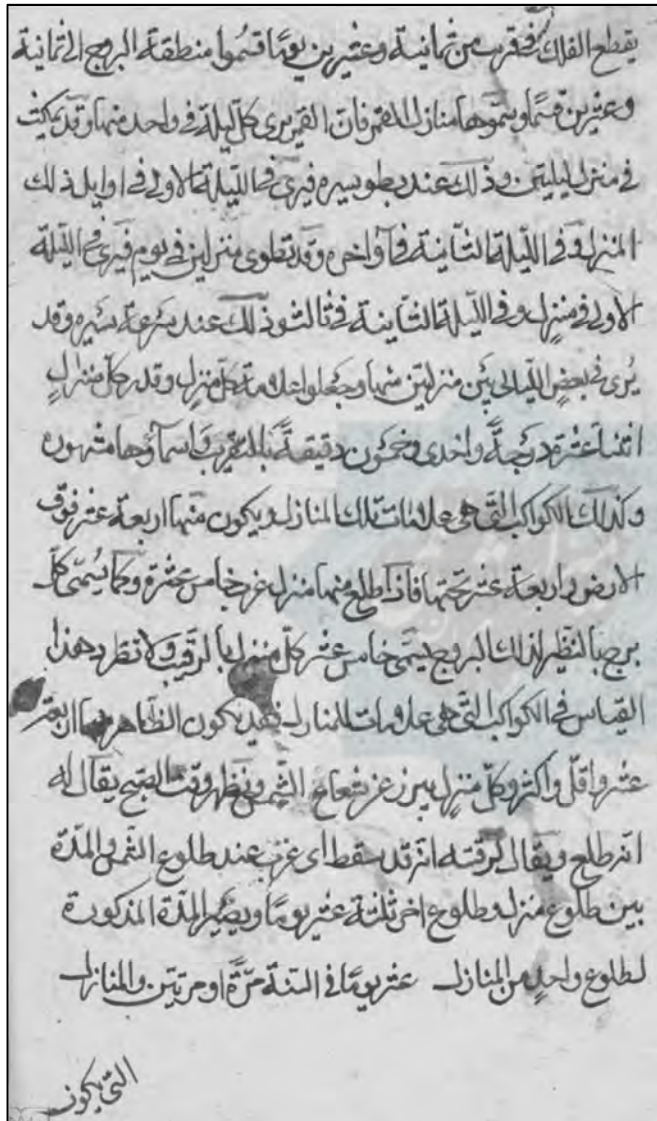 يقطع الفلك في قرب من ثمانية وعشرين يومًا قسموا منطقة البروج الى ثمانية
وعشرين قسمًا وسموها منازل القمر فان القمر يرى كل ليلة في واحد منها وقد يمكث
في منزل ليلتين وذلك عند بطو سيره فيرى في الليلة الاولى في اوايل ذلك
المنزل وفي الليلة الثانية في اواخره وقد تطوى منزلين في يوم فيرى في الليلة
الاولى في منزل وفي الليلة الثانية في ثالث وذلك عند سرعة سيره وقد
يُرى في بعض الليالى بين منزلتين منها وجعلوا علامة كل منزل وقدر كل منزل
اثنتا عشرة درجةً واحدى وخمسون دقيقةً بالتقريب واسماؤها مشهورة
وكذلك الكواكب التى هى علامات تلك المنازل ويكون منها اربعة عشر فوق
الارض واربعة عشر تحتها فاذا طلع منها منزل غرب خامس عشرة وكما يُسمى كل
برج بالنظير لذلك البروج يسمى خامس عشر كل منزل بالرقيب ولا تطرد هذا
القياس في الكواكب التى هى علامات المنازل فقد يكون الظاهر منها اربعة
عشر واقل واكثر وكل منزل يبرز عن شعاع الشمس ويظهر وقت الصبح يقال له
انه طلع ويقال لرقيبه انه قد سقط اى غرب عند طلوع الشمس والمدة
بين طلوع منزل وطلوع اخر ثلثة عشر يومًا ويصير المدة المذكورة
لطلوع واحدٍ من المنازل عشر يومًا في السنة مرّةً او مرتين والمنازل
التى يكون